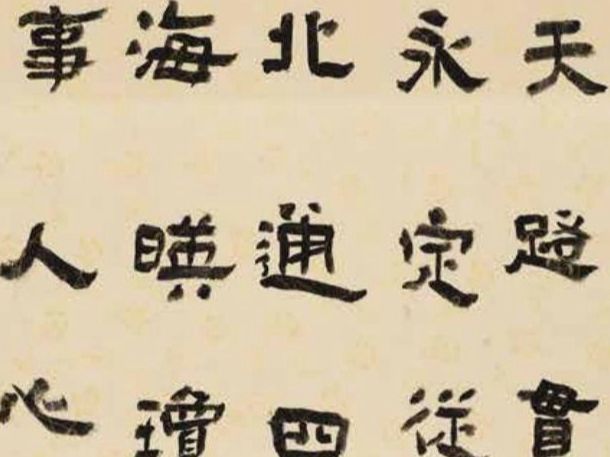 天路貫
永定從
北通四
海暎瓊
事人心